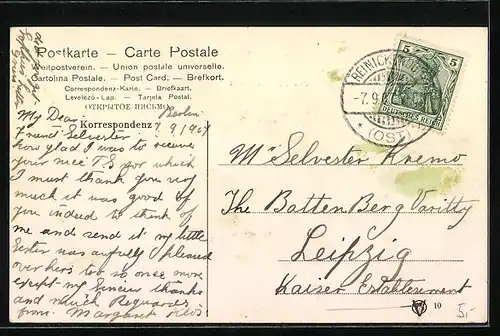 Postkarte – Carte Postale
Weltpostverein. – Union postale universelle.
Cartolina Postale. – Post Card. – Brefkort.
Correspondenz-Karte. – Briefkaart.
Levelező-Lap. – Tarjeta Postal.
ОТКРЫТОЕ ПИСЬМО.
Korrespondenz
Berlin
7/9/
My Dear
Friend Selvester
how glad I was to receive
your nice P.S for which
I must thank you very
much it was good of
you indeed to think of
me and send it my little
Sister was awfully pleased
over hers too so once more
except my Sincere thanks
and much Reguardes
from. Margaret
REINICKENDORF
-7.9.
(OST)
5 5
DEUTSCHES REICH
Mr Selvester Kremo
The Batten Berg Varitty
Leipzig
Kaiser
10
5.-